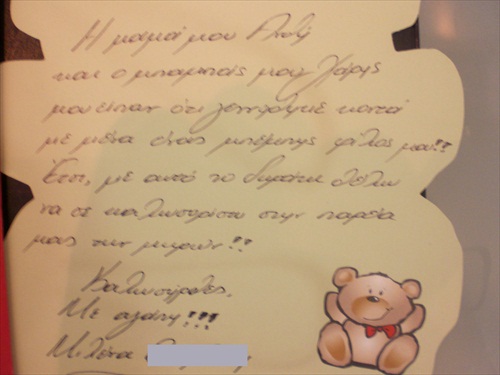 Η μαμά μου
και ο μπαμπάς μου Χάρης
μου είπαν ότι γεννήθηκε κοντά
με μένα ένας μπέμπης φίλος μου!!
Έτσι, με αυτό το δωράκι θέλω
να σε καλωσορίσω στην παρέα
μας των μικρών!!
Με αγάπη!!!
Μιλένα